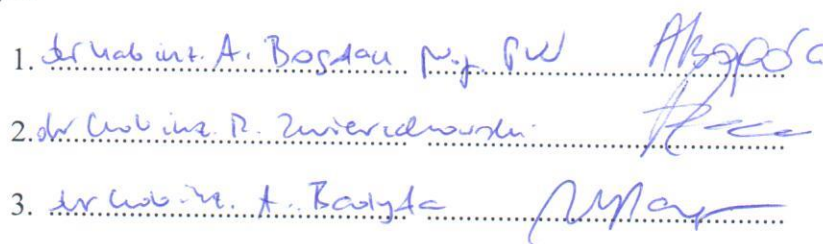 1. dr hab inż. A. Bogdan prof. PW
2. dr hab inż. R. Zwierzchowski
3. dr hab inż. A. Badyda